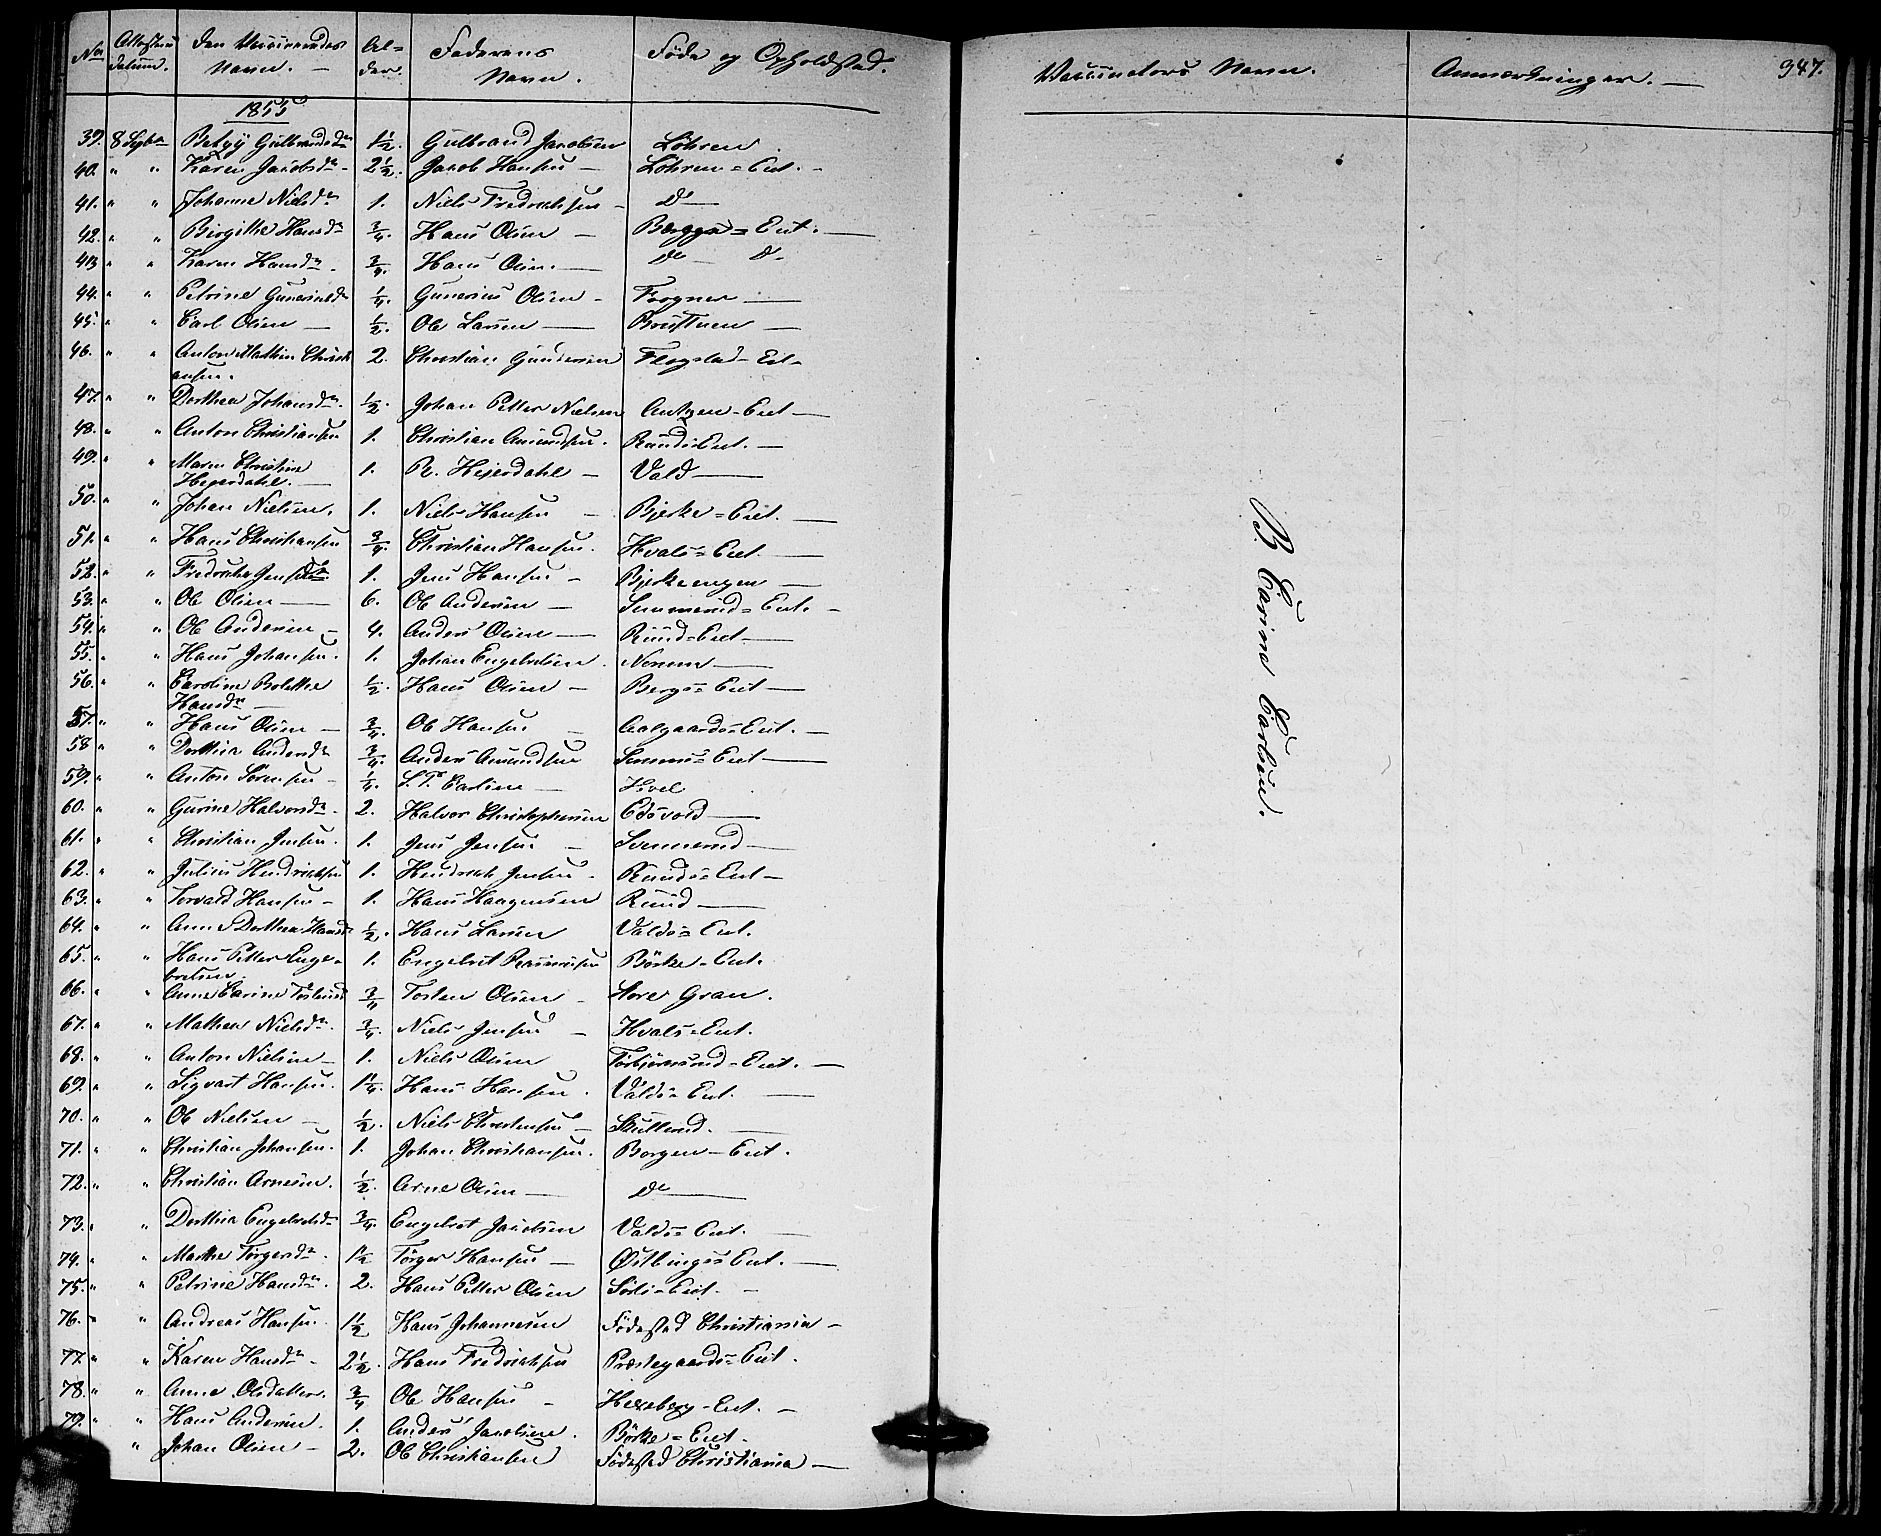 No Attestens datum. Den Vaccineredes Navn. — Al= der. Faderens Navn. Føde og Opholdsted. Vaccinators Navn. Anmærkninger. — 347.
1855
39. 8 Septbr Betzy Gulbrandsdr 1½. Gulbrand Jacobsen Løhren
40. " " Karen Jacobsdr - 2½. Jacob Hansen — Løhren=Eiet. -
41. " " Johanne Nielsdr 1. Niels Fredrichsen - Do —
42. " " Birgitte Hansdr ¾. Hans Olsen — Eiet. —
43 " " Karen Hansdr. ¾. Hans Olsen. — do — do
44. " " Petrine Guneriusdr ¼. Gunerius Olsen - Frogner —
45. " " Carl Olsen — ½. Ole Larsen —
46. " " Anton Mathias Christi 2. Christian Gundersen Flogstad-Eiet
ansen.
47. " " Dorthea Johansdr. ½. Johan Petter Nielsen Eiet —
48. " " Anton Christiansen 1. Christian Amundsen. Ruuds=Eiet. —
49. " " Maren Christine 1. P. Hejerdahl — Vald —
Hejerdahl. —
50. " " Johan Nielsen. 1. Niels Hansen — Bjerke=Eiet. —
51. " " Hans Christiansen ¾. Christian Hansen. Hvals=Eiet. —
52. " " Fredrikke Jensdr. 1. Jens Hansen — Bjerkeengen —
53. " " Ole Olsen — 6. Ole Andersen — Eiet. -
54. " " Ole Andersen — 4. Anders Olsen — Ruud=Eiet —
55. " " Hans Johansen. 1. Johan Engebretsen. —
56. " " Caroline Bolette ½. Hans Olsen — Bergs=Eiet —
Hansdr —
57. " " Hans Olsen — ¾. Ole Hansen — Aalgaards=Eiet. —
58 " " Dorthea Andersdr ¾. Anders Amundsen Eiet —
59. " " Anton Sørensen — ¼. S. T. Carlsen —
60. " " Gurine Halvorsdr. 2. Halvor Christophersen Edsvold —
61. " " Christian Jensen. 1. Jens Jensen — Svennerud —
62. " " Julius Hendrichsen 1. Hendrich Jensen - Ruuds=Eiet —
63. " " Torvald Hansen — 1. Hans Haagensen Ruud —
64. " " Anne Dorthea Hansdr ½. Hans Larsen Valds=Eiet.
65. " " Hans Petter Enge= 1. Engebret Rasmussen Börke=Eiet.
bretsen
66. " " Anne Carine Tostensd ¾ Tosten Olsen - Store Gran.
67. " " Mathea Nielsdr. ¾. Niels Jensen — Hvals=Eiet.
68. " " Anton Nielsen — 1. Niels Olsen Torbjörnsrud=Eiet. —
69. " " Sigvart Hansen. 1¼. Hans Hansen. Valds=Eiet. —
70. " " Ole Nielsen — ½. Niels Christensen — Skullerud. —
71. " " Christian Johansen. 1. Johan Christiansen. Borgen-Eiet.
72. " " Christian Arnesen. ½. Arne Olsen — Do —
73. " " Dorthea Engebretsdr ¾. Engebret Jacobsen Valds=Eiet. —
74. " " Marthe Torgersdr. 1½ Torger Hansen — Østbings=Eiet. —
75. " " Petrine Hansdr. 2. Hans Petter Olsen Eiet. -
76. " " Andreas Hansen. 1½ Hans Johannesen Födested Christiania —
77. " " Karen Hansdr - 2½. Hans Fredrichsen Præstegaards=Eiet.
78. " " Anne Olsdatter. ¾ Ole Hansen — Hexeberg-Eiet. —
79. " " Hans Andersen. 1. Anders Jacobsen. Börke=Eiet.
" Johan Olsen — 2. Ole Christiansen Födested Christiania —
Carine Carlsen.